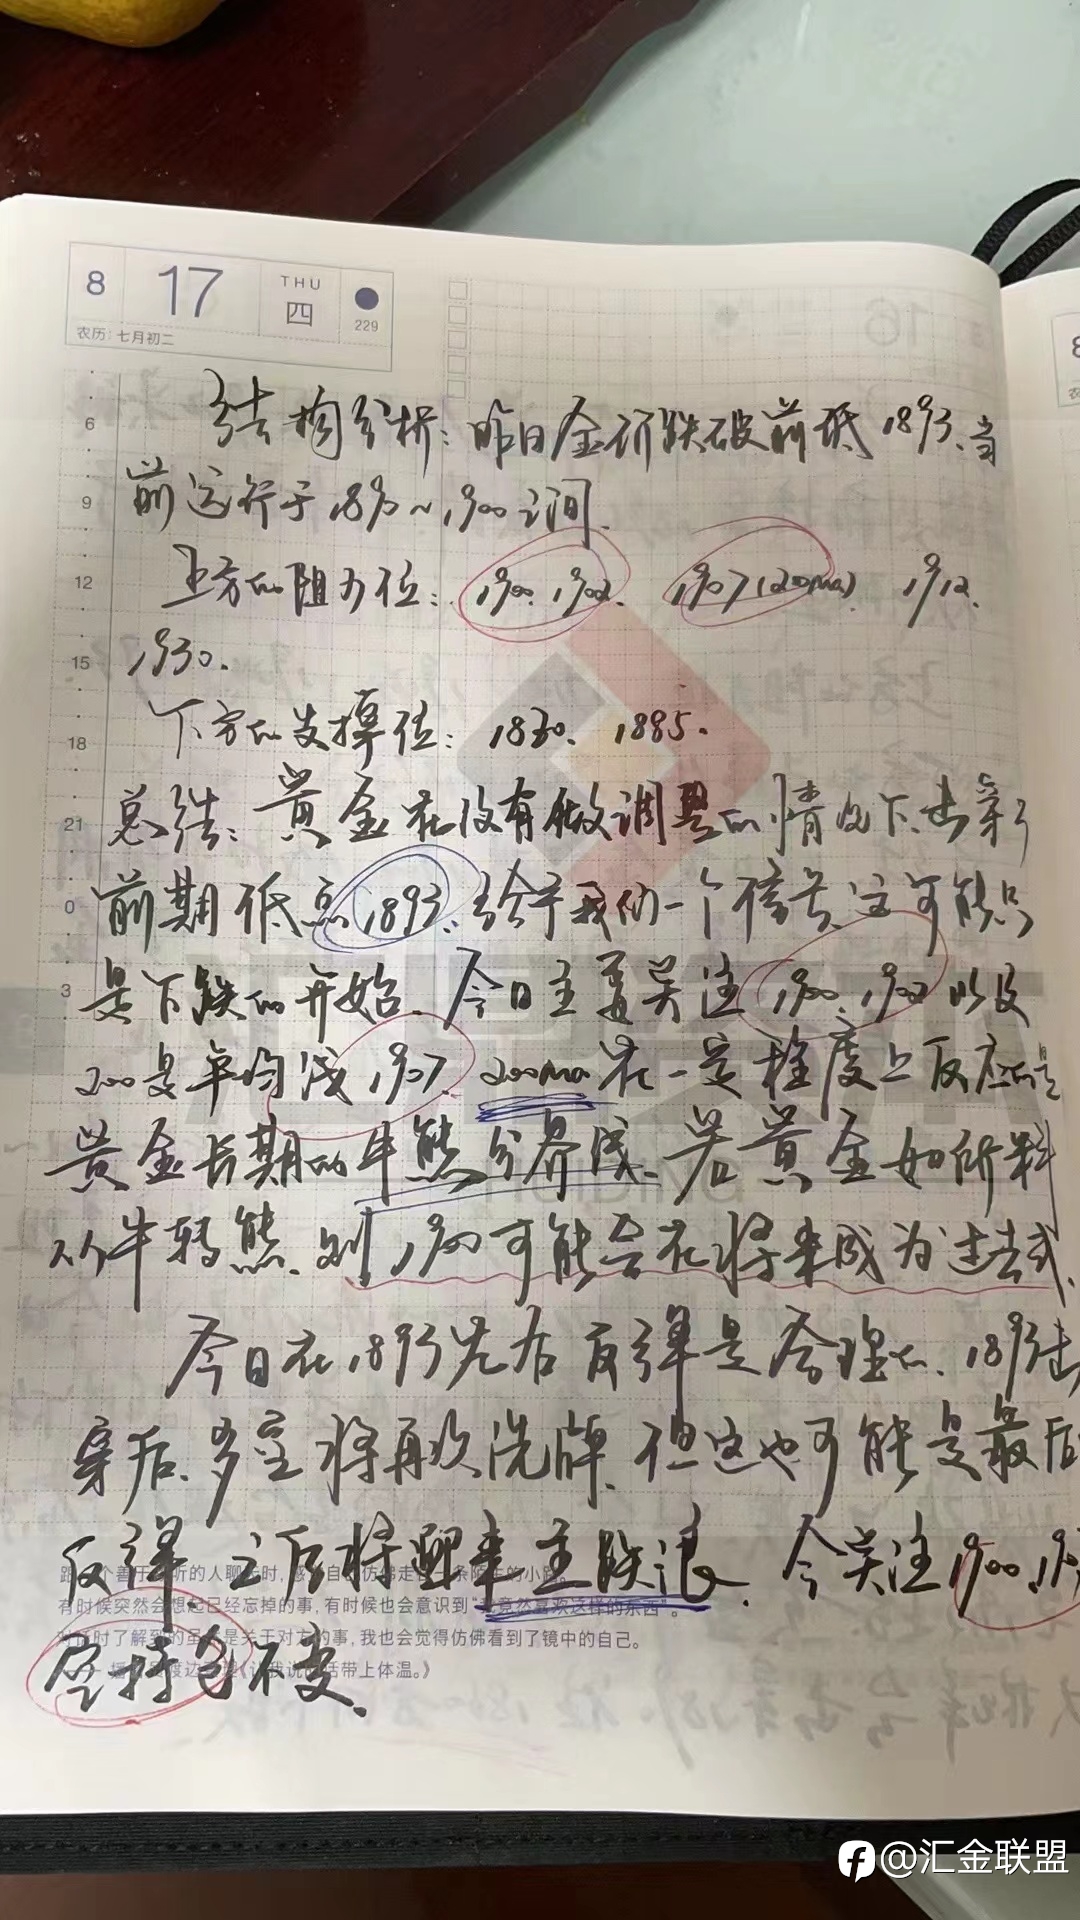 8 17 THU 四 229
农历:七月初二
6 9 12 15 18 21 0 3
结构分析:昨日金价跌破前低1893、当
前运行于1890~1900之间.
上方的阻力位:1900、1902、1907(200ma) 1912、
1930.
下方的支撑位: 1885.
总结:黄金在没有做调整的情况下、击穿了
前期低点1893、给予我们一个信号、这可能只
是下跌的开始、今日主要关注1900、1902以及
200是平均线1907、200ma在一定程度上反应的是
黄金长期的牛熊分界线、若黄金如所料
从牛转熊、则1900可能会在将来成为过去式、
今日在1893先后反弹是合理的、1893击
穿后、多空将再次洗牌、但这也可能是最后
反弹、之后将迎来主跌浪、今关注1900、
空持仓不变、
有时候突然会想起已经忘掉的事,有时候也会意识到“竟然喜欢这样的东西”。
是关于对方的事,我也会觉得仿佛看到了镜中的自己。
@汇金联盟